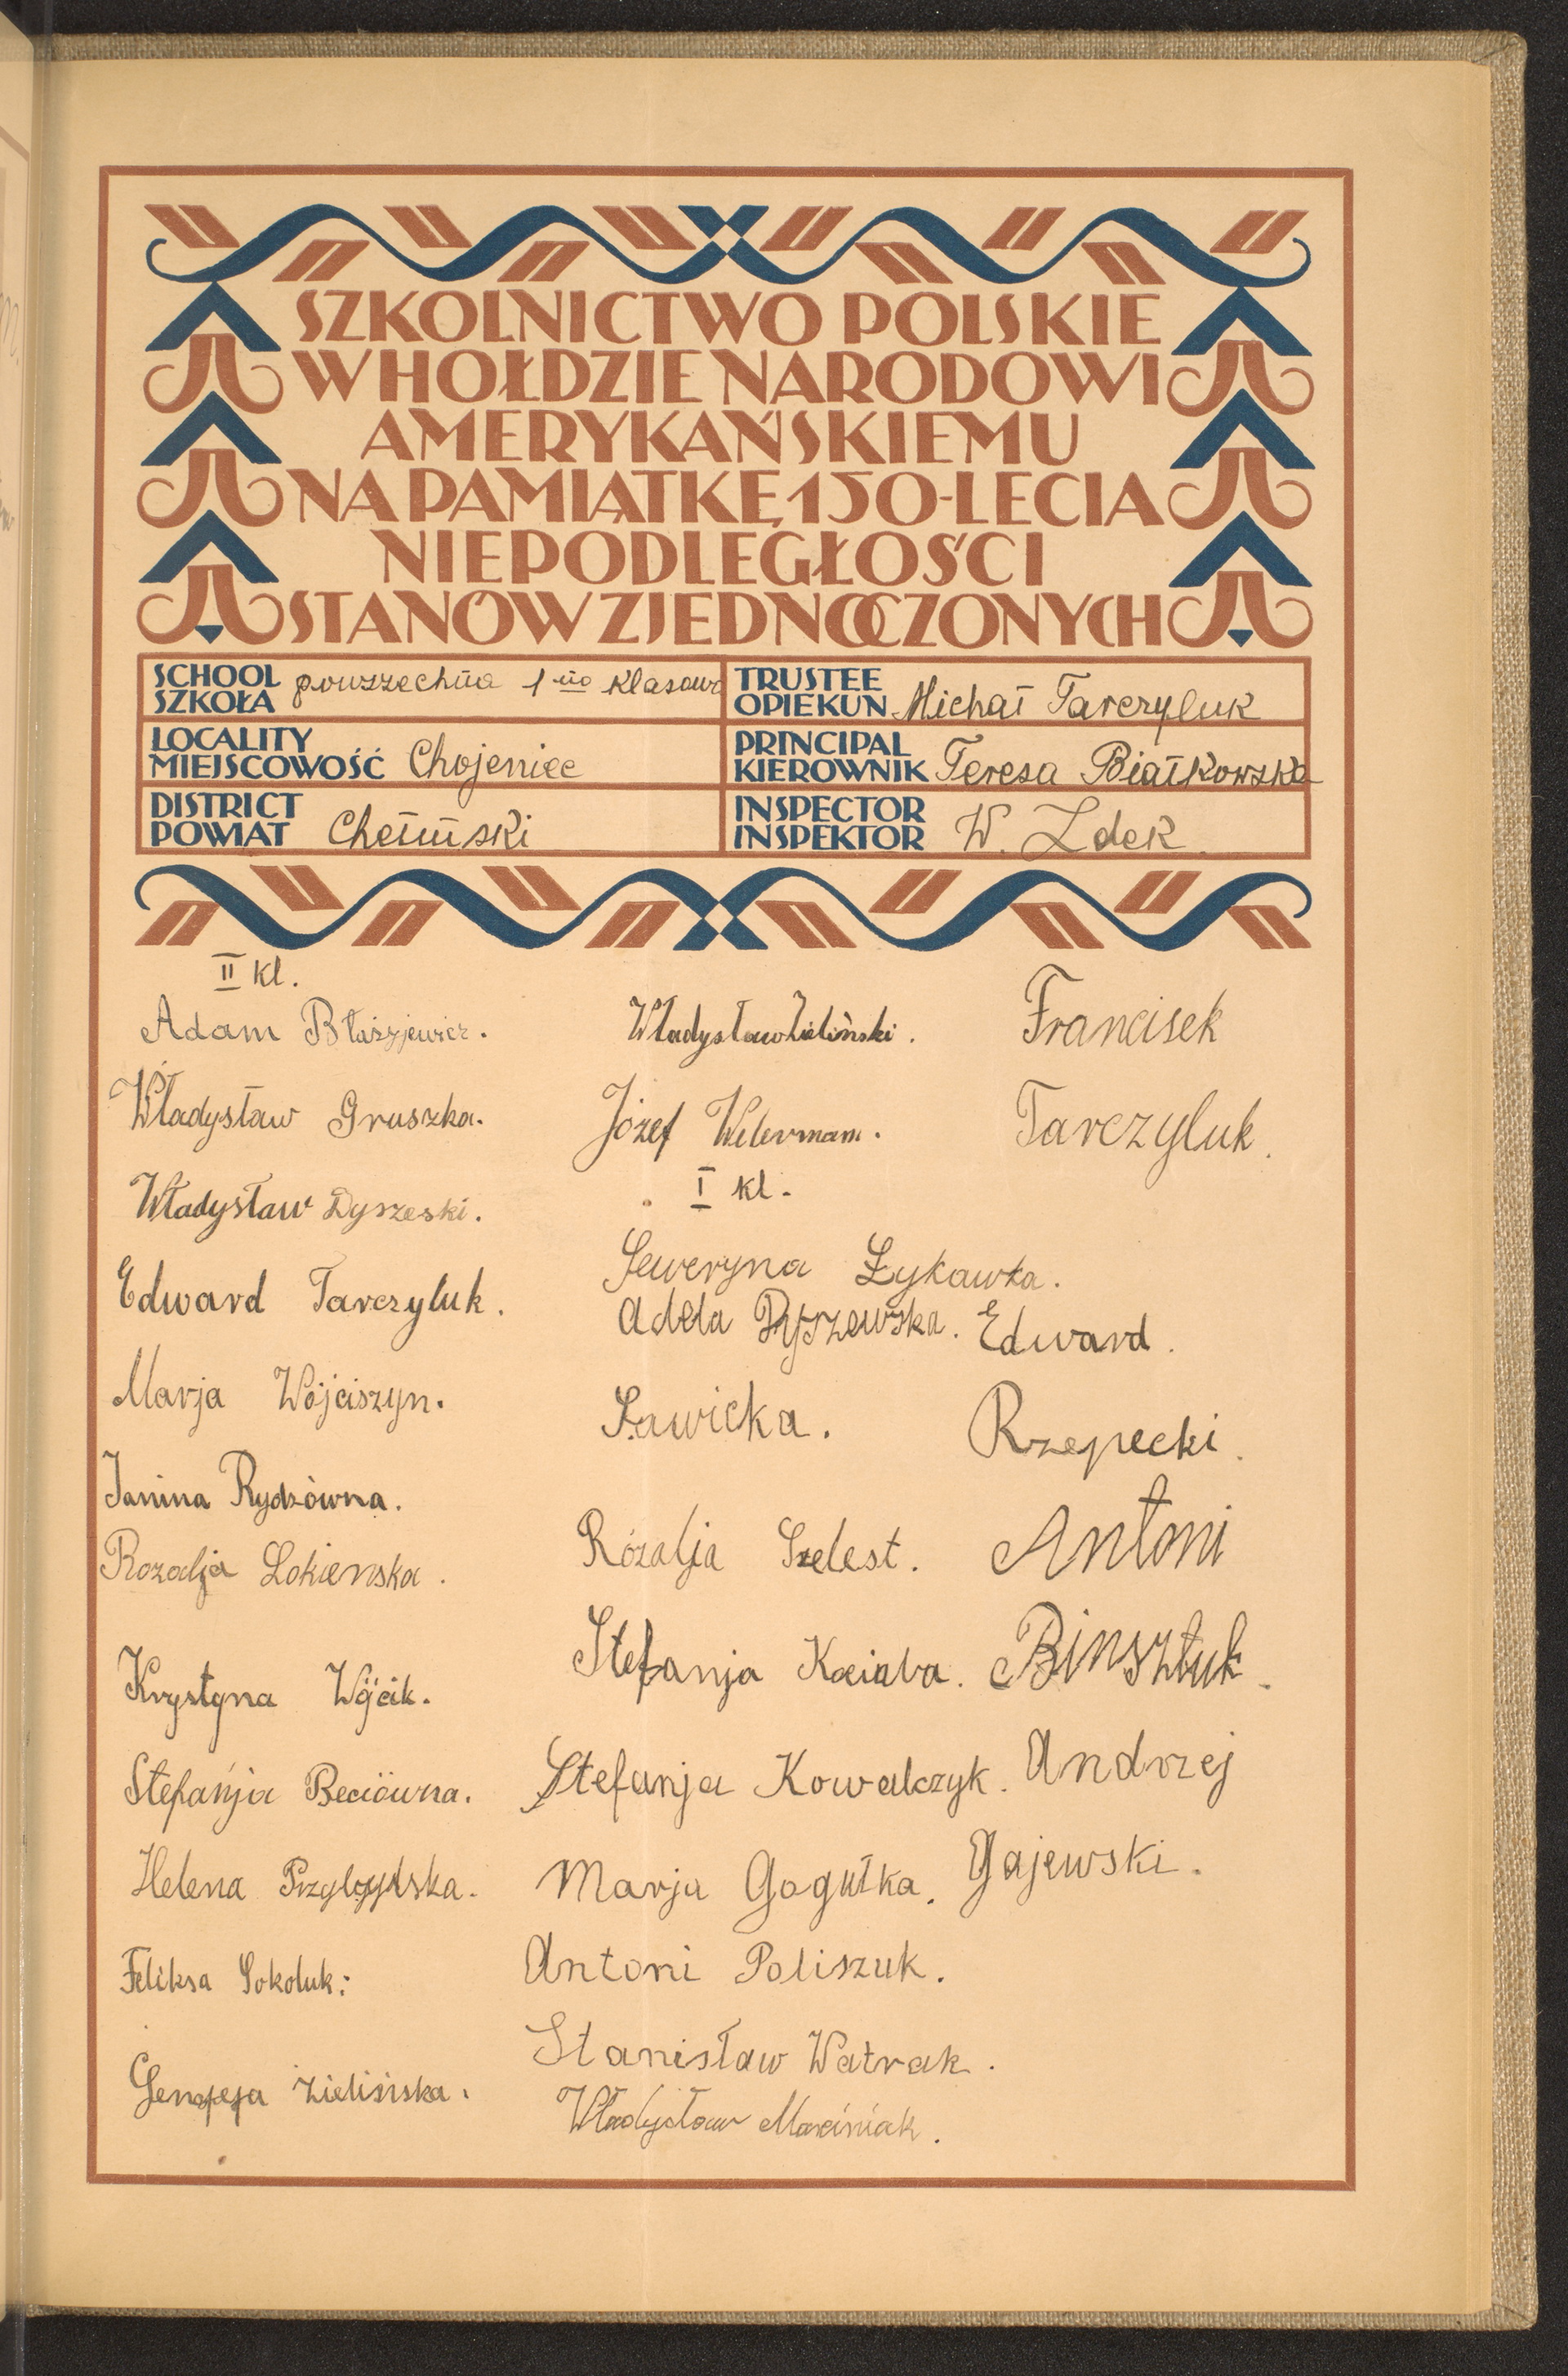 SZKOLNICTWO POLSKIE
W HOŁDZIE NARODOWI
AMERYKAŃSKIEMU
NA PAMIĄTKĘ 150-LECIA
NIEPODLEGŁOŚCI
STANÓW ZJEDNOCZONYCH
SCHOOL
SZKOŁA powszechna 1-no klasowa
LOCALITY
MIEJSCOWOŚĆ Chojeniec
DISTRICT
POWIAT Chełmski
TRUSTEE
OPIEKUN Michał Tarczyluk
PRINCIPAL
KIEROWNIK Teresa Białkowska
INSPECTOR
INSPEKTOR W. Zdek.
II kl.
Adam Błaszjewicz.
Władysław Gruszka.
Władysław Dyszeski.
Edward Tarczyluk.
Marja Wójciszyn.
Janina Rydzówna.
Rozalja Lokienska.
Krystyna Wójcik.
Stefanja Beciówna.
Helena
Feliksa Sokoluk:
Zielińska.
Władysław Zieliński.
Józef
I kl.
Seweryna Łykawka.
Adela Dyszewska.
Sawicka.
Rózalja Szelest.
Stefanja
Stefanja Kowalczyk.
Marja Gogułka.
Antoni Poliszuk.
Stanisław Watrak.
Władysław Marciniak.
Francisek
Tarczyluk.
Edward.
Rzepecki.
Antoni
Binsztuk.
Andrzej
Gajewski.